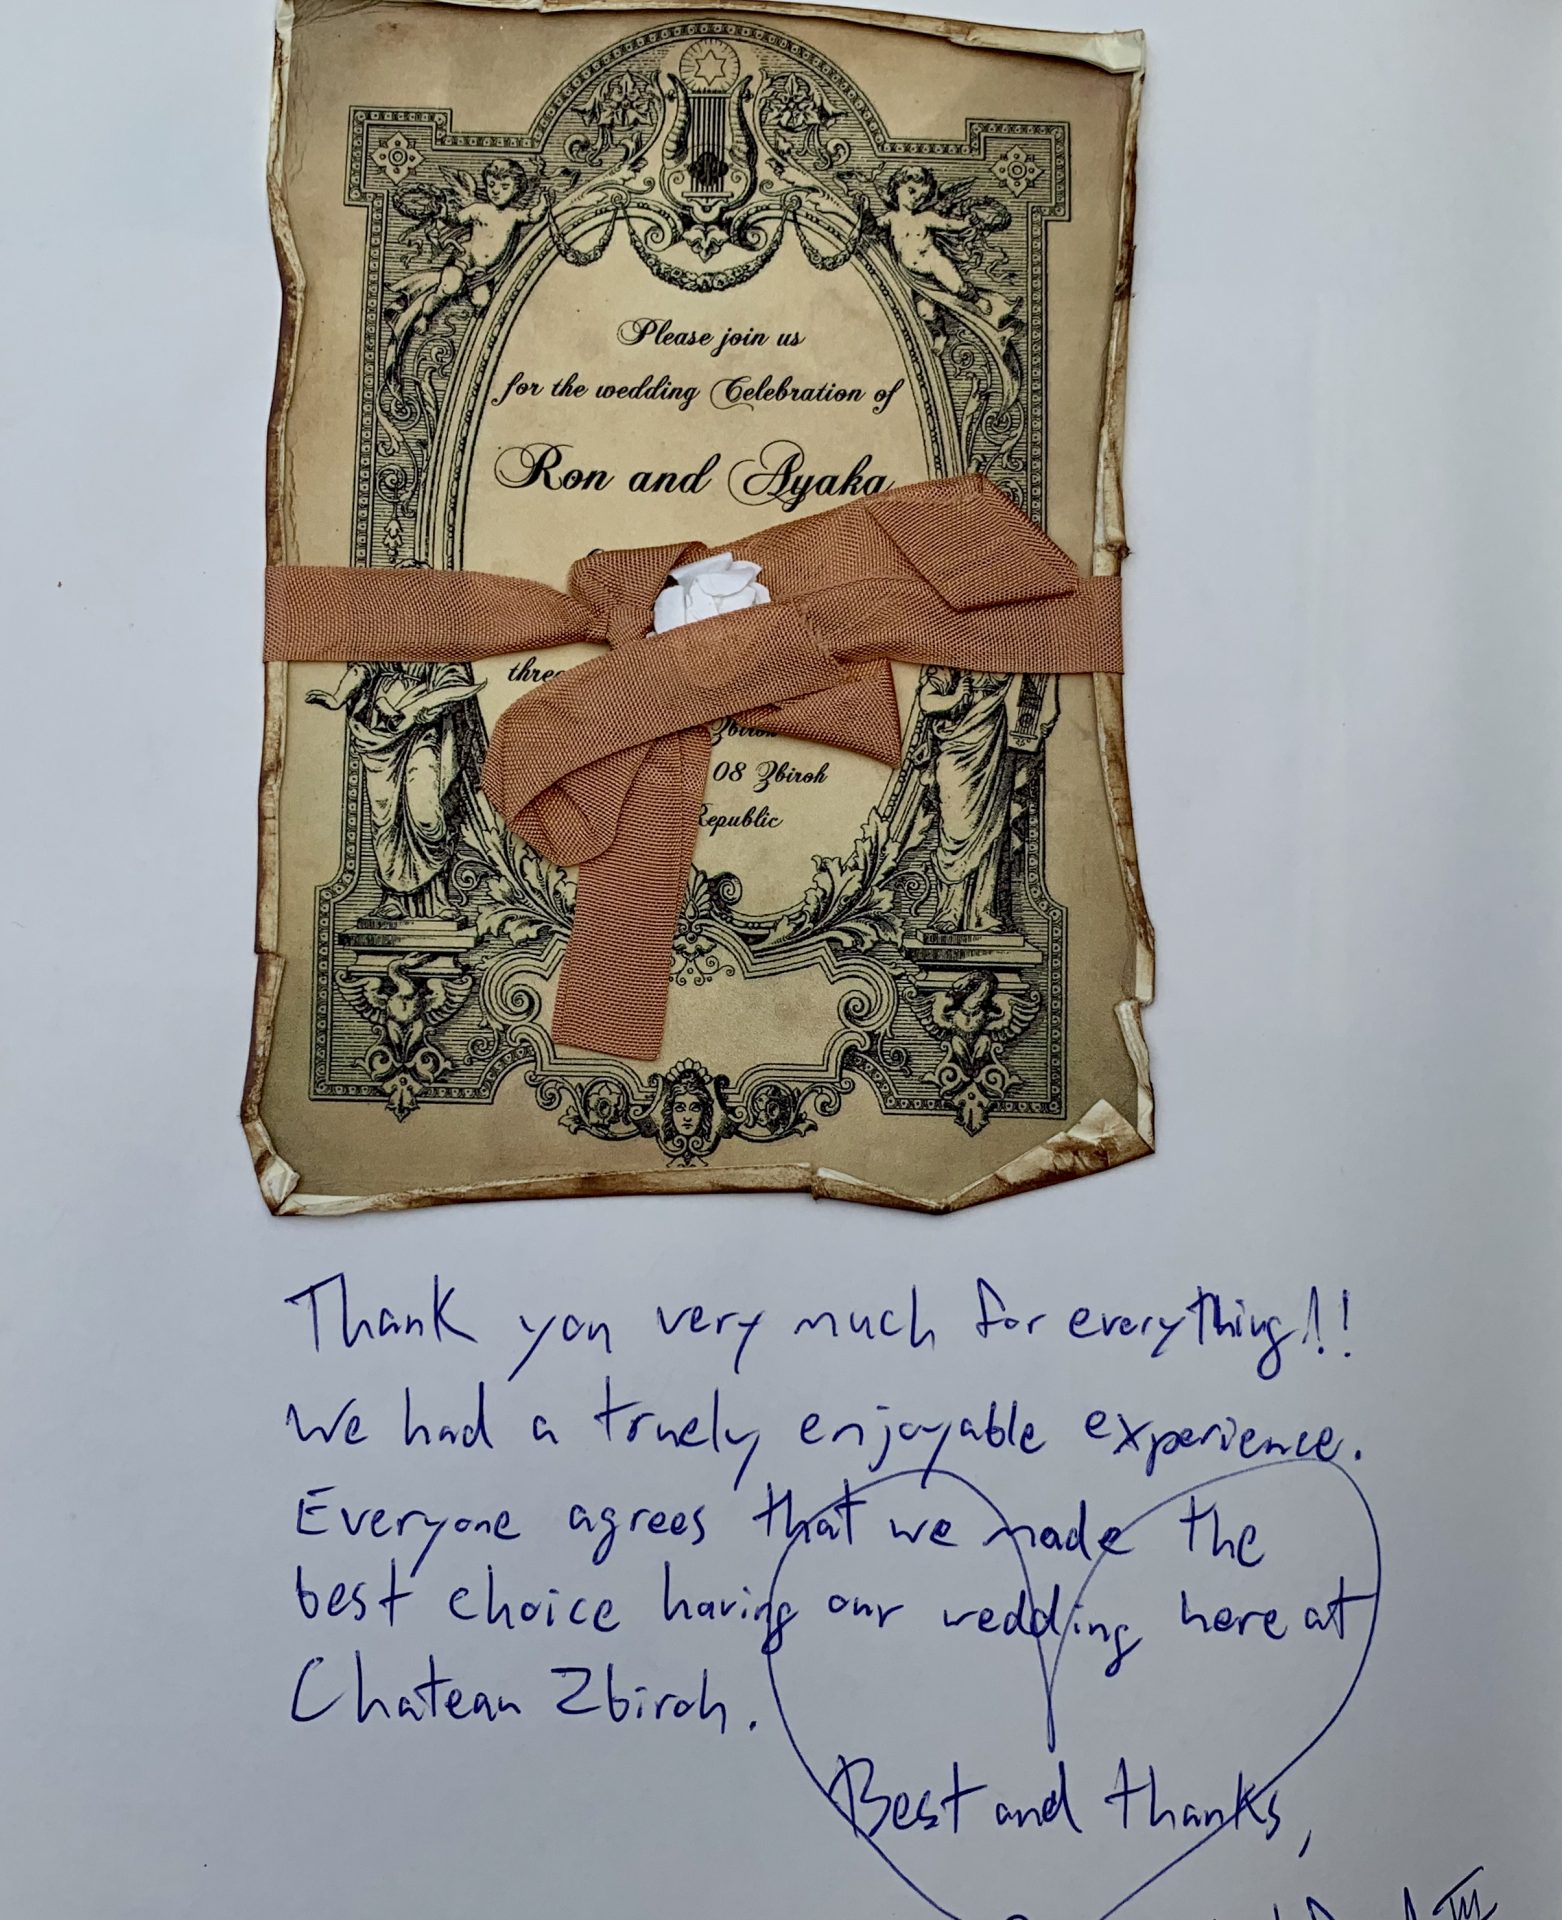 Please join us
for the wedding Celebration of
Ron and Ayaka
Zbiroh
08 Zbiroh
Republic
Thank you very much for everything!!
We had a truely enjoyable experience.
Everyone agrees that we made the
best choice having our wedding here at
Chateau Zbiroh.
Best and thanks,